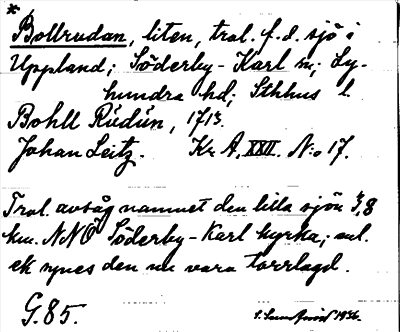 *
Bollrudan, liten, trol. f. d. sjö i
Uppland; Söderby-Karl sn; Ly-
hundra hd; Sthlms l.
Bohll Rudun, 1713.
Johan Leitz. Kr A, XXII. N:o 17.
Trol. avsåg namnet den lilla sjön 3,8
km. NNO Söderby-Karl kyrka; enl.
ek synes den nu vara torrlagd.
G. 85.
1936.